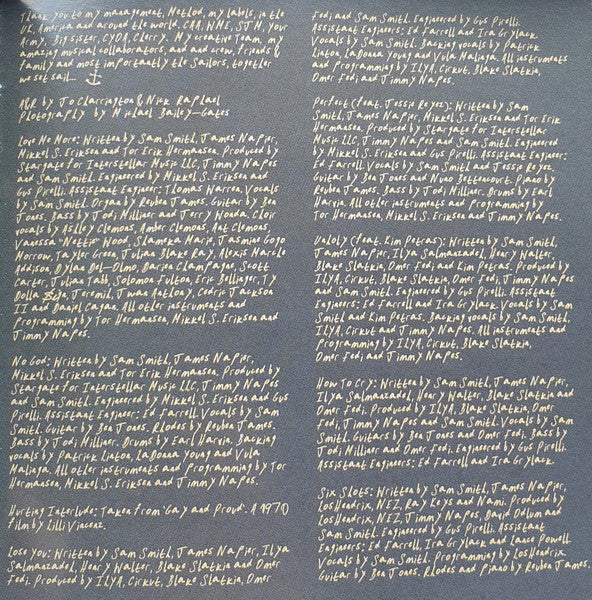 Thank you to my management, Method, my labels, in the
UK, America and around the world. CAA, WME, SJM, Your
Army, Big sister, CYOA, Cherry. My creative team, my
amazing musical collaborators, and and crew, friends &
family and most importantly the Sailors, together
we set sail...
A&R by Jo Charrington & Nick Raphael
Photography by Michael Bailey-Gates
Love Me More: Written by Sam Smith, James Napier,
Mikkel S. Eriksen and Tor Erik Hermansen. Produced by
Stargate for Interstellar Music LLC, Jimmy Napes
and Sam Smith. Engineered by Mikkel S. Eriksen and
Gus Pirelli. Assistant Engineer: Thomas Warren. Vocals
by Sam Smith. Organ by Reuben James. Guitar by Ben
Jones. Bass by Jodi Milliner and Jerry Wonda. Choir
vocals by Ashley Clemons, Amber Clemons, Ant Clemons,
Vanessa "Nettie" Wood, Shameka Marie, Jasmine Gogo
Morrow, Tayler Green, Juliana Blake Ray, Alexis Marcle
Addison, Dylan Del-Olmo, Darien Champagne, Scott
Carter, Julian Tabb, Solomon Fulton, Eric Bellinger, Ty
Dolla $ign, Jeremih, Jwan Anthony, Cedric Jackson
II and Daniel Cagan. All other instruments and
Programming by Tor Hermansen, Mikkel S. Eriksen and
Jimmy Napes.
No God: Written by Sam Smith, James Napier,
Mikkel S. Eriksen and Tor Erik Hermansen. Produced by
Stargate for Interstellar Music LLC, Jimmy Napes
and Sam Smith. Engineered by Mikkel S. Eriksen and Gus
Pirelli. Assistant Engineer: Ed Farrell. Vocals by Sam
Smith. Guitar by Ben Jones. Rhodes by Reuben James.
Bass by Jodi Milliner. Drums by Earl Harvin. Backing
vocals by Patrick Linton, LaDonna Young and Vula
Malinga. All other instruments and Programming by Tor
Hermansen, Mikkel S. Eriksen and Jimmy Napes.
Hurting Interlude: Taken from 'Gay and Proud'. A 1970
film by Lilli Vincenz.
Lose You: Written by Sam Smith, James Napier, Ilya
Salmanzadeh, Henry Walter, Blake Slatkin and Omer
Fedi. Produced by ILYA, Cirkut, Blake Slatkin, Omer
Fedi and Sam Smith. Engineered by Gus Pirelli.
Assistant Engineers: Ed Farrell and Ira Grylack.
Vocals by Sam Smith. Backing vocals by Patrick
Linton, LaDonna Young and Vula Malinga. All instruments
and Programming by ILYA, Cirkut, Blake Slatkin,
Omer Fedi and Jimmy Napes.
Perfect (feat. Jessie Reyez): Written by Sam
Smith, James Napier, Mikkel S. Eriksen and Tor Erik
Hermansen. Produced by Stargate for Interstellar
Music LLC, Jimmy Napes and Sam Smith. Engineered
by Mikkel S. Eriksen and Gus Pirelli. Assistant Engineer:
Ed Farrell. Vocals by Sam Smith and Jessie Reyez.
Guitar by Ben Jones and Nuno Bettencourt. Piano by
Reuben James. Bass by Jodi Milliner. Drums by Earl
Harvin. All other instruments and Programming by
Tor Hermansen, Mikkel S. Eriksen and Jimmy Napes.
Unholy (feat. Kim Petras): Written by Sam Smith,
James Napier, Ilya Salmanzadeh, Henry Walter,
Blake Slatkin, Omer Fedi and Kim Petras. Produced by
ILYA, Cirkut, Blake Slatkin, Omer Fedi, Jimmy Napes
and Sam Smith. Engineered by Gus Pirelli. Assistant
Engineers: Ed Farrell and Ira Grylack. Vocals by Sam
Smith and Kim Petras. Backing vocals by Sam Smith,
ILYA, Cirkut and Jimmy Napes. All instruments and
Programming by ILYA, Cirkut, Blake Slatkin,
Omer Fedi and Jimmy Napes.
How To Cry: Written by Sam Smith, James Napier,
Ilya Salmanzadeh, Henry Walter, Blake Slatkin and
Omer Fedi. Produced by ILYA, Blake Slatkin, Omer
Fedi, Jimmy Napes and Sam Smith. Vocals by Sam
Smith. Guitars by Ben Jones and Omer Fedi. Bass by
Jodi Milliner and Omer Fedi. Engineered by Gus Pirelli.
Assistant Engineers: Ed Farrell and Ira Grylack.
Six Shots: Written by Sam Smith, James Napier,
LosHendrix, NEZ, Ray Keys and Nami. Produced by
LosHendrix, NEZ, Jimmy Napes, David Odlum and
Sam Smith. Engineered by Gus Pirelli. Assistant
Engineers: Ed Farrell, Ira Grylack and Lance Powell.
Vocals by Sam Smith. Programming by LosHendrix.
Guitar by Ben Jones. Rhodes and Piano by Reuben James,